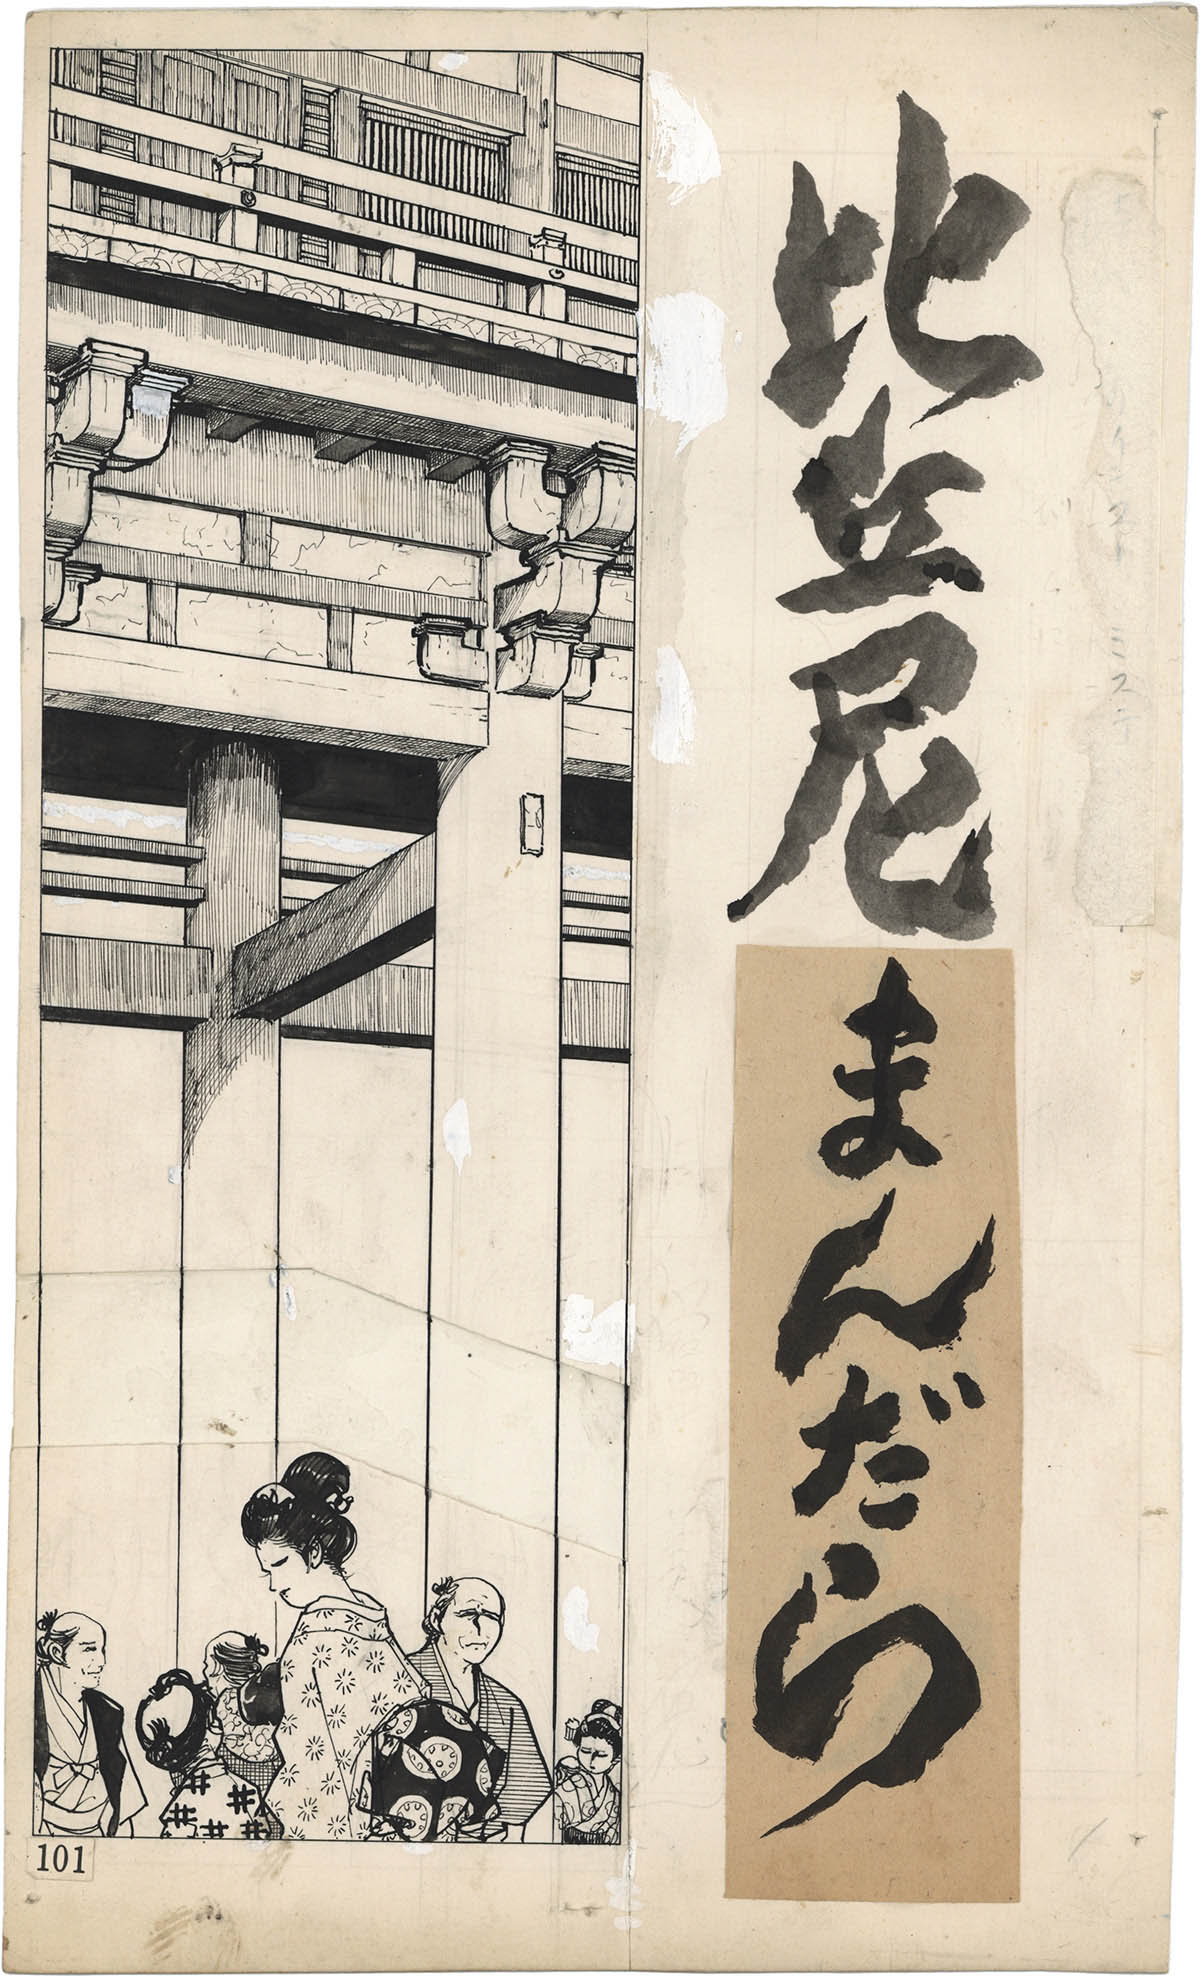 比丘尼
まんだら
101